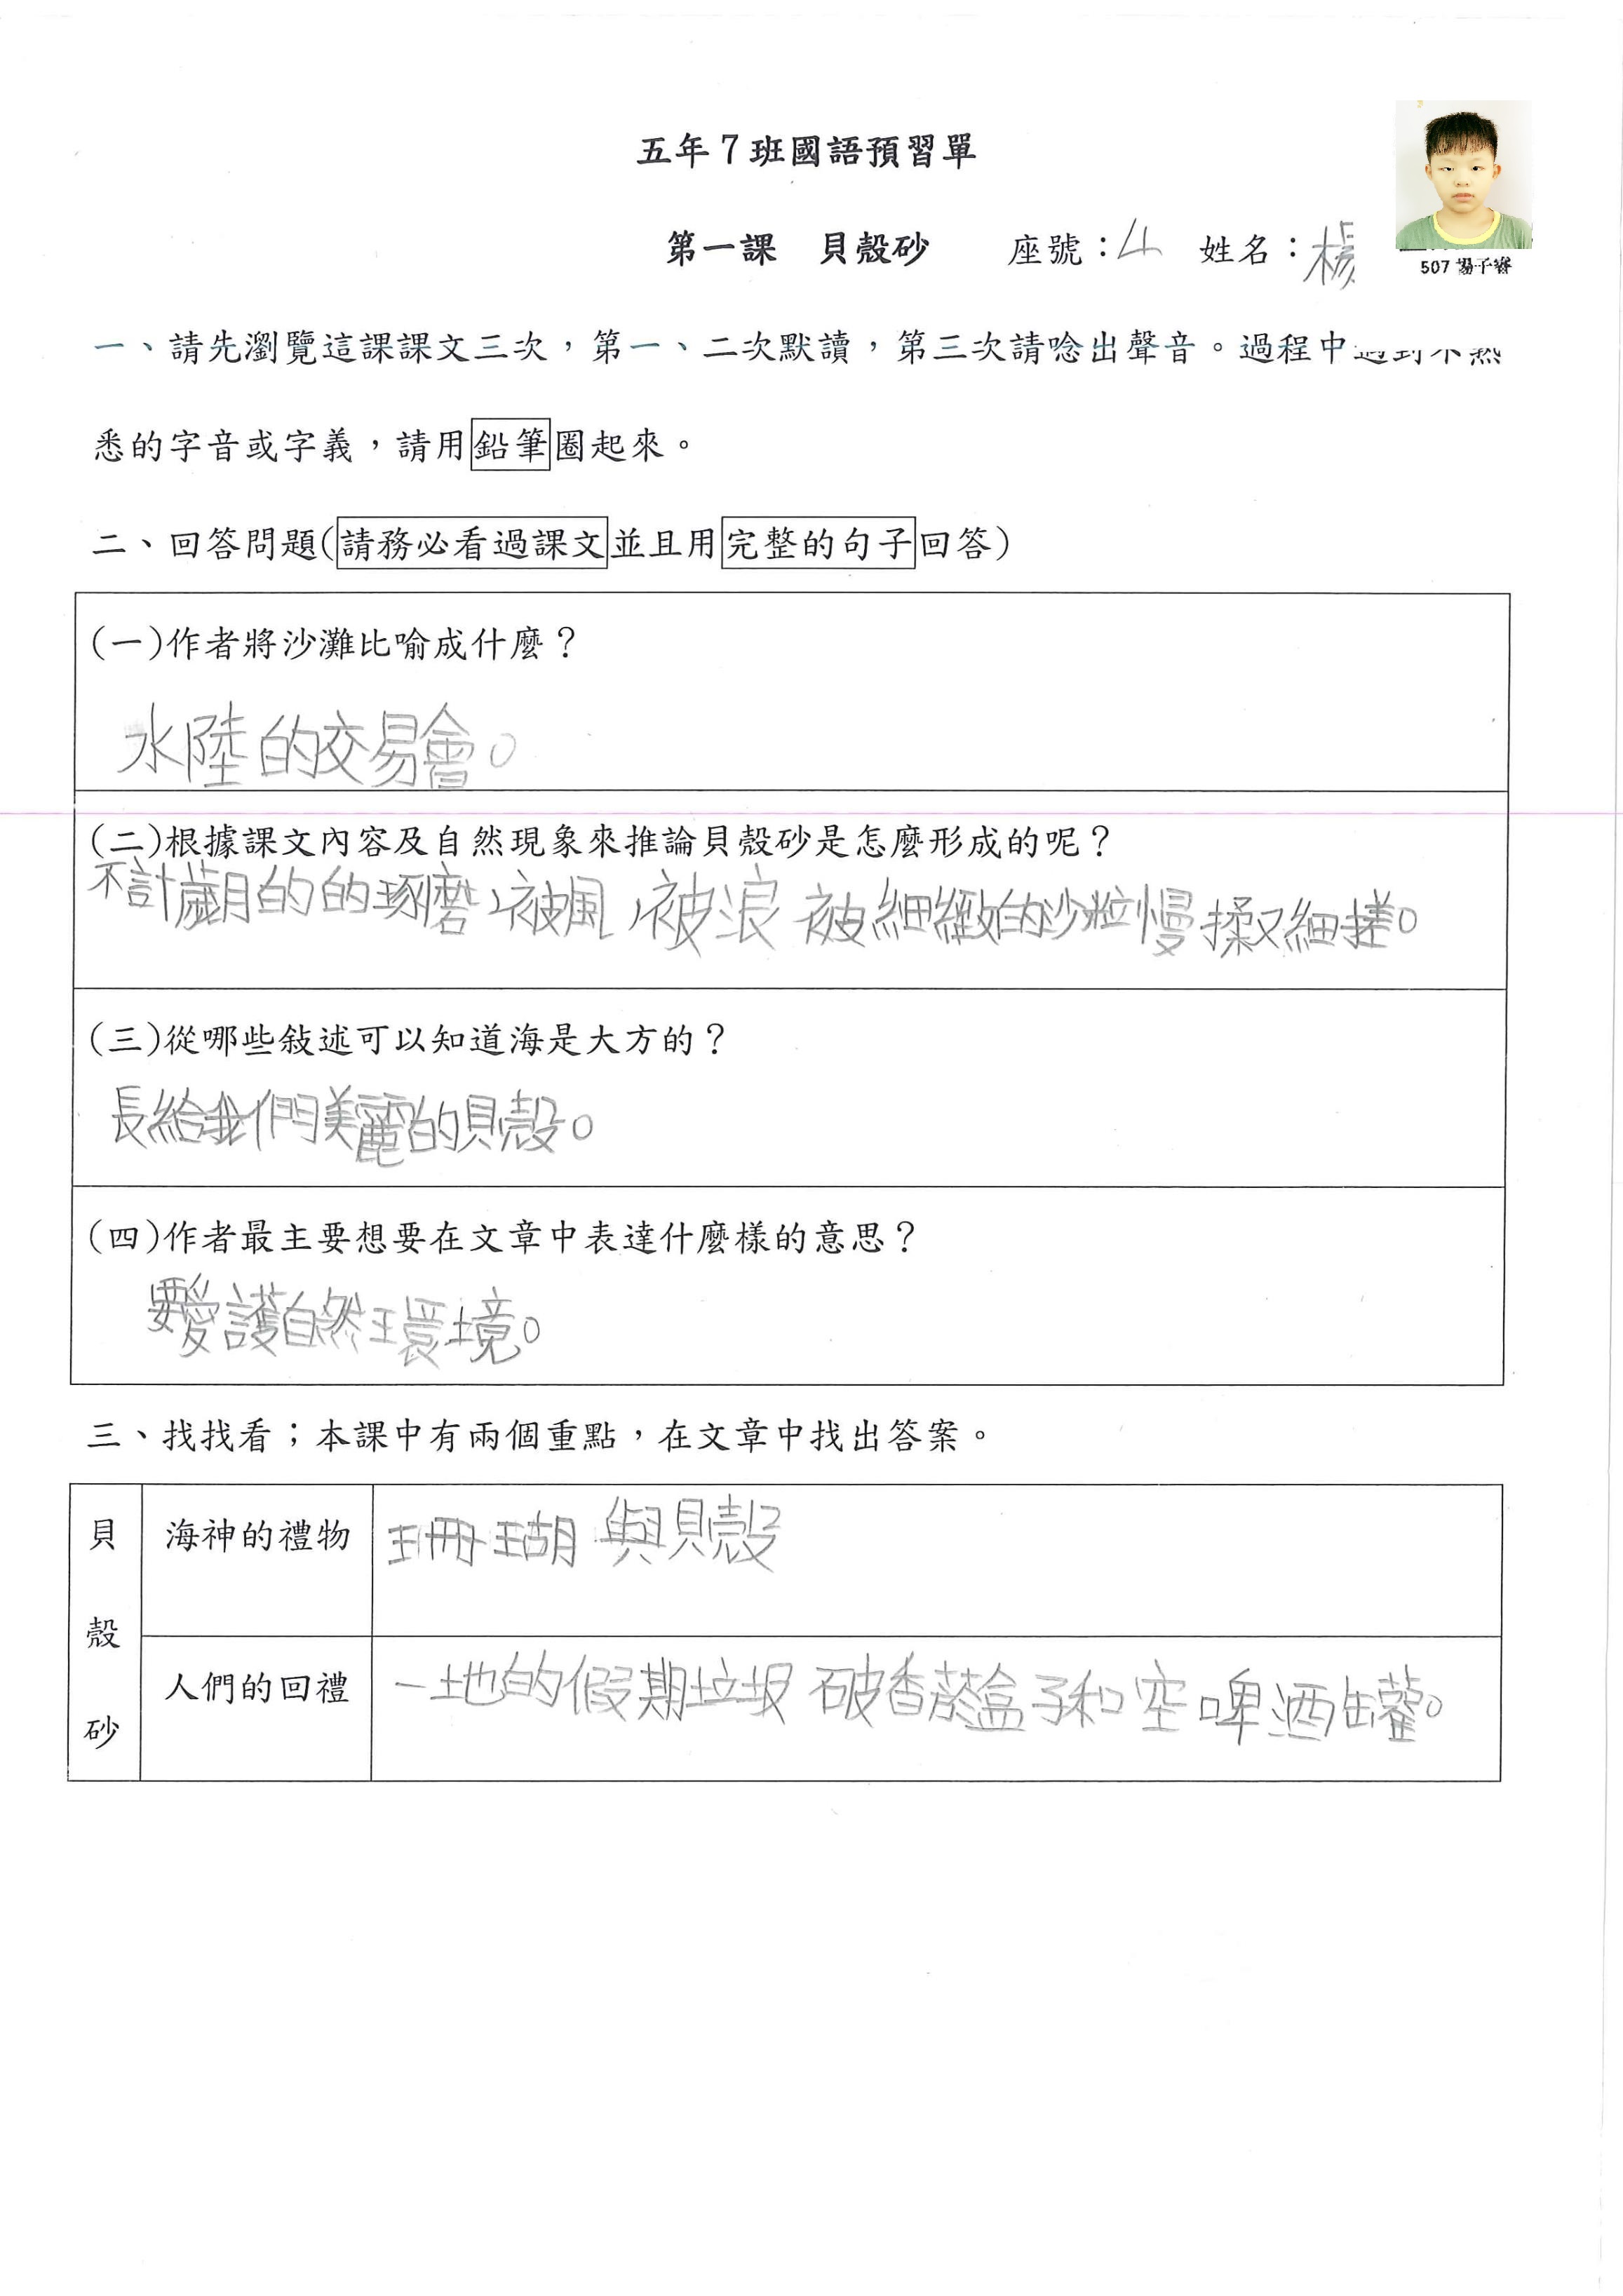 五年7班國語預習單
第一課 貝殼砂 座號：4 姓名：楊
507 楊子
一、請先瀏覽這課課文三次，第一、二次默讀，第三次請唸出聲音。過程中遇到不熟
悉的字音或字義，請用鉛筆圈起來。
二、回答問題(請務必看過課文並且用完整的句子回答)
(一)作者將沙灘比喻成什麼？
水陸的交易會。
(二)根據課文內容及自然現象來推論貝殼砂是怎麼形成的呢？
不計歲月的的琢磨，被風，被浪 被細緻的沙粒慢揉又細搓。
(三)從哪些敍述可以知道海是大方的？
長給我們美麗的貝殼。
(四)作者最主要想要在文章中表達什麼樣的意思？
要愛護自然環境。
三、找找看；本課中有兩個重點，在文章中找出答案。
貝殼砂
海神的禮物 珊瑚與貝殼
人們的回禮 一地的假期垃圾 破香菸盒子和空啤酒罐。